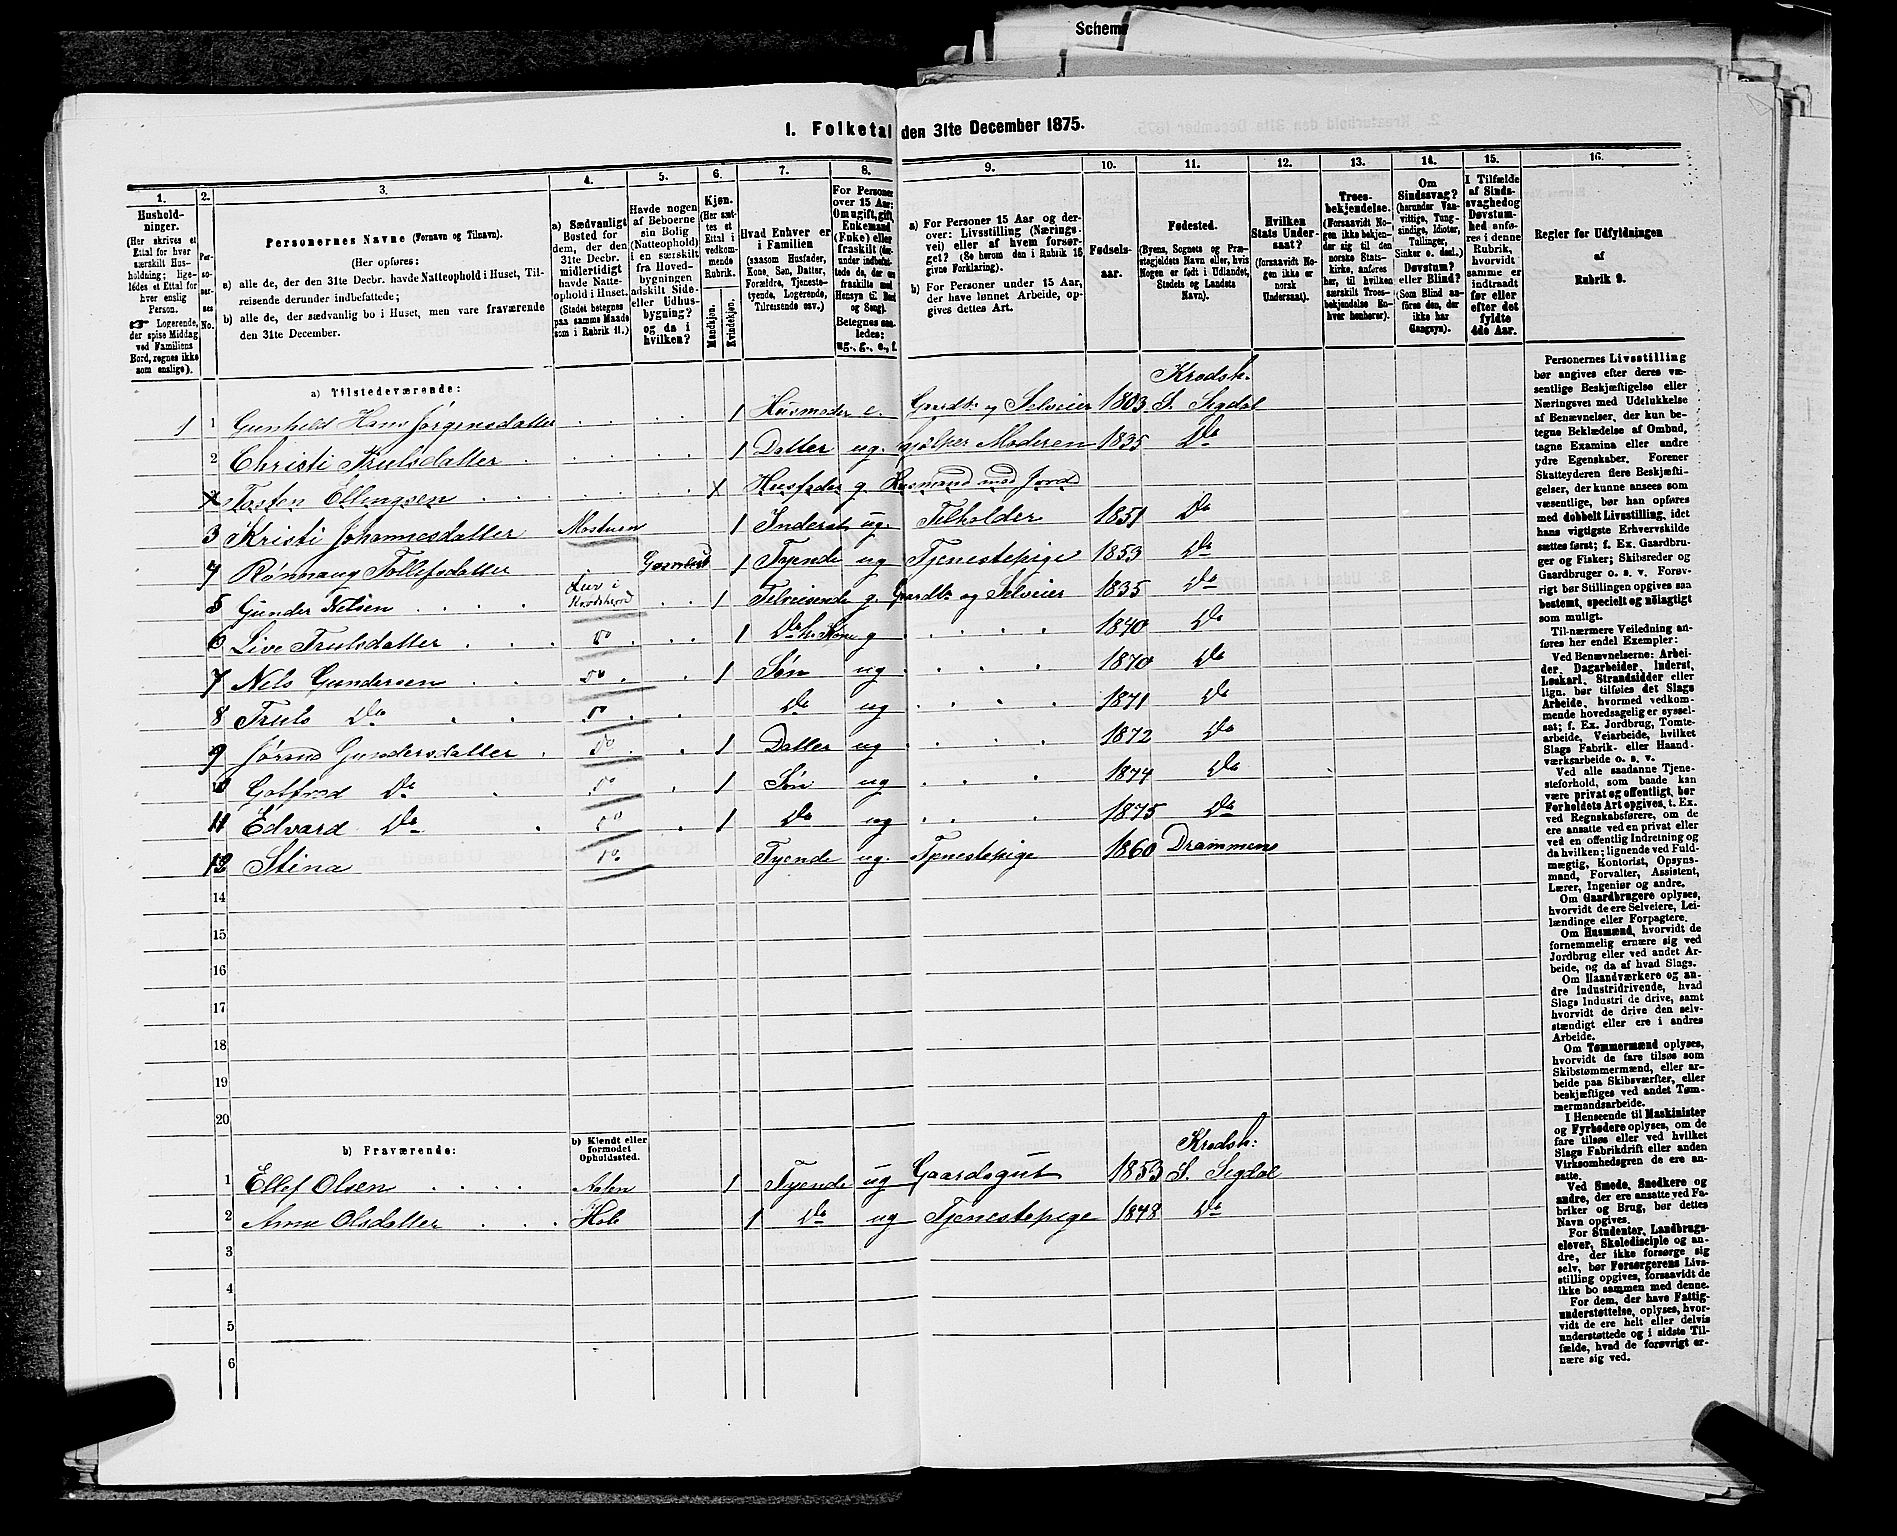 Schema
1. Folketal den 31te December 1875.
1. 2. 3. 4. 5. 6. 7. 8. 9. 10. 11. 12. 13. 14. 15. 16.
Husholdninger.
(Her skrives et Ettal for hver særskilt Husholdning; ligeledes et Ettal for hver enslig Person.
☞ Logerende, der spise Middag ved Familiens Bord, regnes ikke som enslige).
Personernes No.
Personernes Navne (Fornavn og Tilnavn).
(Her opføres:
a) alle de, der den 31te Decbr. havde Natteophold i Huset, Tilreisende derunder indbefattede;
b) alle de, der sædvanlig bo i Huset, men vare fraværende den 31te December.
a) Sædvanligt Bosted for dem, der den 31te Decbr. midlertidigt havde Natteophold i Huset. (Stedet betegnes paa samme Maade som i Rubrik 11.)
Havde nogen af Beboerne sin Bolig (Natteophold) i en særskilt fra Hovedbygningen adskilt Side- eller Udhusbygning? og da i hvilken?
Kjøn. (Her sættes et Ettal i vedkommende Rubrik.
Mandkjøn. Kvindekjøn.
Hvad Enhver er i Familien
(saasom Husfader, Kone, Søn, Datter, Forældre, Tjenestetyende, Logerende, Tilreisende osv.)
For Personer over 15 Aar: Om ugift, gift, Enkemand (Enke) eller fraskilt
Betegnes saaledes: ug., g., e., f.
a) For Personer 15 Aar og derover: Livsstilling (Næringsvei) eller af hvem forsørget? (Se herom den i Rubrik 16 givne Forklaring).
b) For Personer under 15 Aar, der have lønnet Arbeide, opgives dettes Art.
Fødselsaar.
Fødested.
(Byens, Sognets og Præstegjeldets Navn eller, hvis Nogen er født i Udlandet, Stedets og Landets Navn).
Hvilken Stats Undersaat?
(forsaavidt Nogen ikke er norsk Undersaat).
Troesbekjendelse.
(Forsaavidt Nogen ikke bekjender sig til den norske Statskirke, anføres her, til hvilken særskilt Troesbekjendelse Enhver henhører).
Om Sindssvag? (herunder Vanvittige, Tungsindige, Idioter, Tullinger, Sinker o. desl.) Døvstum? eller Blind? (Som Blind anføres den, der ikke har Gangsyn).
I Tilfælde af Sindssvaghed og Døvstumhed anføres i denne Rubrik, hvorvidt samme er indtraadt før eller efter det fyldte 4de Aar.
Regler for Udfyldningen af Rubrik 9.
a) Tilstedeværende: Krødsh.
1 1 Gunhild Hans Jørgensdatter 1 Husmoder e. Gaardb. og Selveier 1803 S. Sigdal
2 Christi Trulsdatter 1 Datter ug. hjælper Moderen 1835 Do
Torsten Ellingsen x Husfader g. Husmand med Jord
3 Kristi Johannesdatter 1 Inderst ug. 1851 Do
4 Rønnaug Tollefsdatter 1 Tyende ug Tjenestepige 1853 Do
5 Gunder Nilsen 1 Tilreisende g. Gaardb. og Selveier 1835 Do
6 Live Trulsdatter Do 1 Do h. Kone g 1840 Do
7 Nels Gundersen Do 1 Søn ug 1870 Do
8 Truls Do Do Do ug 1871 Do
9 Jørand Gundersdatter Do 1 Datter ug 1872 Do
10 Do Do 1 Søn ug 1874 Do
11 Edvard Do Do 1 Do ug 1875 Do
12 Stina Do Tyende ug. Tjenestepige 1860 Drammen
14
15
16
17
18
19
20
b) Fraværende: b) Kjendt eller formodet Opholdssted. Krødsh:
1 Ellef Olsen 1 Tyende ug Gaardsgut 1853 S. Sigdal
2 Anne Olsdatter Hole 1 Do ug Tjenestepige 1848 Do
3
4
5
6
Personernes Livsstilling
bør angives efter deres væ-
sentlige Beskjæftigelse eller
Næringsvei med Udelukkelse
af Benævnelser, der kun be-
tegne Beklædelse af Ombud,
tagne Examina eller andre
ydre Egenskaber. Forener
Skatteyderen flere Beskjæfti-
gelser, der kunne ansees som
væsentlige, bør han opføres
med dobbelt Livsstilling, idet
hans vigtigste Erhvervskilde
sættes først; f. Ex. Gaardbru-
ger og Fisker; Skibsreder og
Gaardbruger o. s. v. Forøv-
rigt bør Stillingen opgives saa
bestemt, specielt og nøiagtigt
som muligt.
Til nærmere Veiledning an-
føres her endel Exempler:
Ved Benævnelserne: Arbei-
der, Dagarbeider, Inderst,
Løskarl, Strandsidder eller
lign. bør tilføies det Slags
Arbeide, hvormed vedkom-
mende hovedsagelig er syssel-
sat; f. Ex. Jordbrug, Tomte-
arbeide, Veiarbeide, hvilket
Slags Fabrik- eller Haand-
værksarbeide o. s. v.
Ved alle saadanne Tjene-
steforhold, som baade kan
være privat og offentligt, bør
Forholdets Art opgives, t. Ex.
ved Regnskabsførere, om de
ere ansatte ved en privat eller
ved en offentlig Indretning og
da hvilken; lignende ved Fuld-
mægtig, Kontorist, Opsyns-
mand, Forvalter, Assistent,
Lærer, Ingeniør og andre.
Om Gaardbrugere oplyses,
hvorvidt de ere Selveiere, Lei-
lændinge eller Forpagtere.
Om Husmænd, hvorvidt de
fornemmelig ernære sig ved
Jordbrug eller ved andet Ar-
beide, og da af hvad Slags.
Om Haandværkere og an-
dre Industridrivende, hvad
Slags Industri de drive, samt
hvorvidt de drive den selv-
stændigt eller ere i andres
Arbeide.
Om Tømmermænd oplyses,
hvorvidt de fare tilsøs som
Skibstømmermænd, eller ar-
beide paa Skibsværfter, eller
beskjæftiges ved andet Tøm-
mermandsarbeide.
I Henseende til Maskinister
og Fyrbødere oplyses, om de
fare tilsøs eller ved hvilket
Slags Fabrikdrift eller anden
Virksomhedsgren de ere an-
satte.
Ved Smede, Snedkere og
andre, der ere ansatte ved Fa-
briker og Brug, bør dettes
Navn opgives.
For Studenter, Landbrugs-
elever, Skoledisciple og an-
dre, der ikke forsørge sig
selv, bør Forsørgerens Livs-
stilling opgives, forsaavidt de
ikke bo sammen med denne.
For dem, der have Fattig-
understøttelse, oplyses, hvor-
vidt de ere helt eller delvis
understøttede og i sidste Til-
fælde, hvad de forøvrigt er-
nære sig ved.